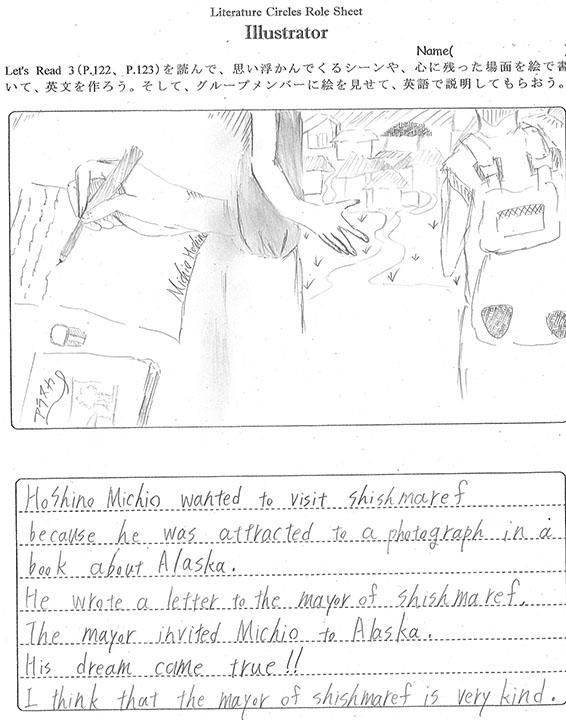 Literature Circles Role Sheet
Illustrator
Name(
Let's Read 3(P.122、P.123)を読んで、思い浮かんでくるシーンや、心に残った場面を絵で書
いて、英文を作ろう。そして、グループメンバーに絵を見せて、英語で説明してもらおう。
Michio Hoshino
アラスカ
Hoshino Michio wanted to visit shishmaref
because he was attracted to a photograph in a
book about Alaska.
He wrote a letter to the mayor of shishmaref.
The mayor invited Michio to Alaska.
His dream came true!!
I think that the mayor of shishmaref is very kind.